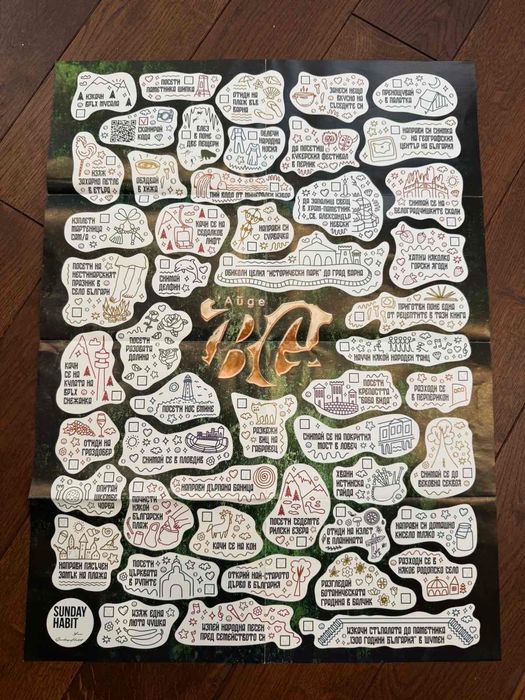 ИЗКАЧИ
ВРЪХ МУСАЛА
ПОСЕТИ
ПАМЕТНИКА ШИПКА
ОТИДИ НА
ПЛАЖ КЪМ
ВАРНА
ЗАНЕСИ НЕЩО
ВКУСНО НА
СЪСЕДИТЕ
ПРЕНОЩУВАЙ
В ПАЛАТКА
СКАНИРАЙ
КОДА
ВЛЕЗ
В ПОНЕ
ДВЕ ПЕЩЕРИ
ОБЛЕЧИ
НАРОДНА
НОСИЯ
ДА ПОСЕТИШ
КУКЕРСКИЯ ФЕСТИВАЛ
В ПЕРНИК
НАПРАВИ СИ СНИМКА
НА ГЕОГРАФСКИЯ
ЦЕНТЪР НА БЪЛГАРИЯ
ИЗЯЖ
ЗАХАРНО ПЕТЛЕ
В ЕТЪРА
ОБЯДВАЙ
В ХИЖА
ПИЙ ВОДА ОТ МИНЕРАЛЕН ИЗВОР
ДА ЗАПАЛИШ СВЕЩ
В ХРАМ-ПАМЕТНИК
„СВ. АЛЕКСАНДЪР
НЕВСКИ“
СНИМАЙ СЕ НА
БЕЛОГРАДЧИШКИТЕ СКАЛИ
ИЗПЛЕТИ
МАРТЕНИЦА
САМ/А
КАЧИ СЕ НА
СЕДАЛКОВ
ЛИФТ
НАПРАВИ СИ
СУРВАЧКА
ОБИКОЛИ ЦЕЛИЯ "ИСТОРИЧЕСКИ ПАРК" ДО ГРАД ВАРНА
ХАПНИ НЯКОЛКО
ГОРСКИ ЯГОДИ
ПОСЕТИ НА
НЕСТИНАРСКИЯ
ПРАЗНИК В
СЕЛО БЪЛГАРИ
СНИМАЙ
ДЕЛФИН
Айде
BG
ПРИГОТВИ ПОНЕ ЕДНА
ОТ РЕЦЕПТИТЕ В ТАЗИ КНИГА
ПОСЕТИ
РОЗОВАТА
ДОЛИНА
НАУЧИ НЯКОЙ НАРОДЕН ТАНЦ
КАЧИ
СЕ НА
КУЛАТА НА
ВРЪХ
СНЕЖАНКА
ПОСЕТИ НОС ЕМИНЕ
ПОСЕТИ
КРЕПОСТТА
"БАБА ВИДА"
РАЗХОДИ СЕ
В ПЕРПЕРИКОН
ОТИДИ НА
ГРОЗДОБЕР
СНИМАЙ СЕ В ПЛОВДИВ
РАЗКАЖИ
ВИЦ НА
ГАБРОВЕЦ
СНИМАЙ СЕ НА ПОКРИТИЯ
МОСТ В ЛОВЕЧ
СНИМАЙ СЕ ДО
ВЕКОВНА СЕКВОЯ
ОПИТАЙ
ШКЕМБЕ
ЧОРБА
НАПРАВИ ДЪРПАНА БАНИЦА
ХВАНИ
ИСТИНСКА
ГАЙДА
ПОЧИСТИ
НЯКОЙ
БЪЛГАРСКИ
ПЛАЖ
КАЧИ СЕ НА КОН
ПОСЕТИ СЕДЕМТЕ
РИЛСКИ ЕЗЕРА
ОТИДИ НА ИЗЛЕТ
В ПЛАНИНАТА
НАПРАВИ СИ ДОМАШНО
КИСЕЛО МЛЯКО
НАПРАВИ ПЯСЪЧЕН
ЗАМЪК НА ПЛАЖА
ПОСЕТИ
ЦЪРКВАТА
В РУПИТЕ
ОТКРИЙ НАЙ-СТАРОТО
ДЪРВО В БЪЛГАРИЯ
РАЗГЛЕДАЙ
БОТАНИЧЕСКАТА
ГРАДИНА В БАЛЧИК
РАЗХОДИ СЕ В
НЯКОЕ РОДОПСКО СЕЛО
SUNDAY
HABIT
ИЗЯЖ ЕДНА
ЛЮТА ЧУШКА
ИЗПЕЙ НАРОДНА ПЕСЕН
ПРЕД СЕМЕЙСТВОТО СИ
ИЗКАЧИ СТЪПАЛАТА ДО ПАМЕТНИКА
"1300 ГОДИНИ БЪЛГАРИЯ" В ШУМЕН